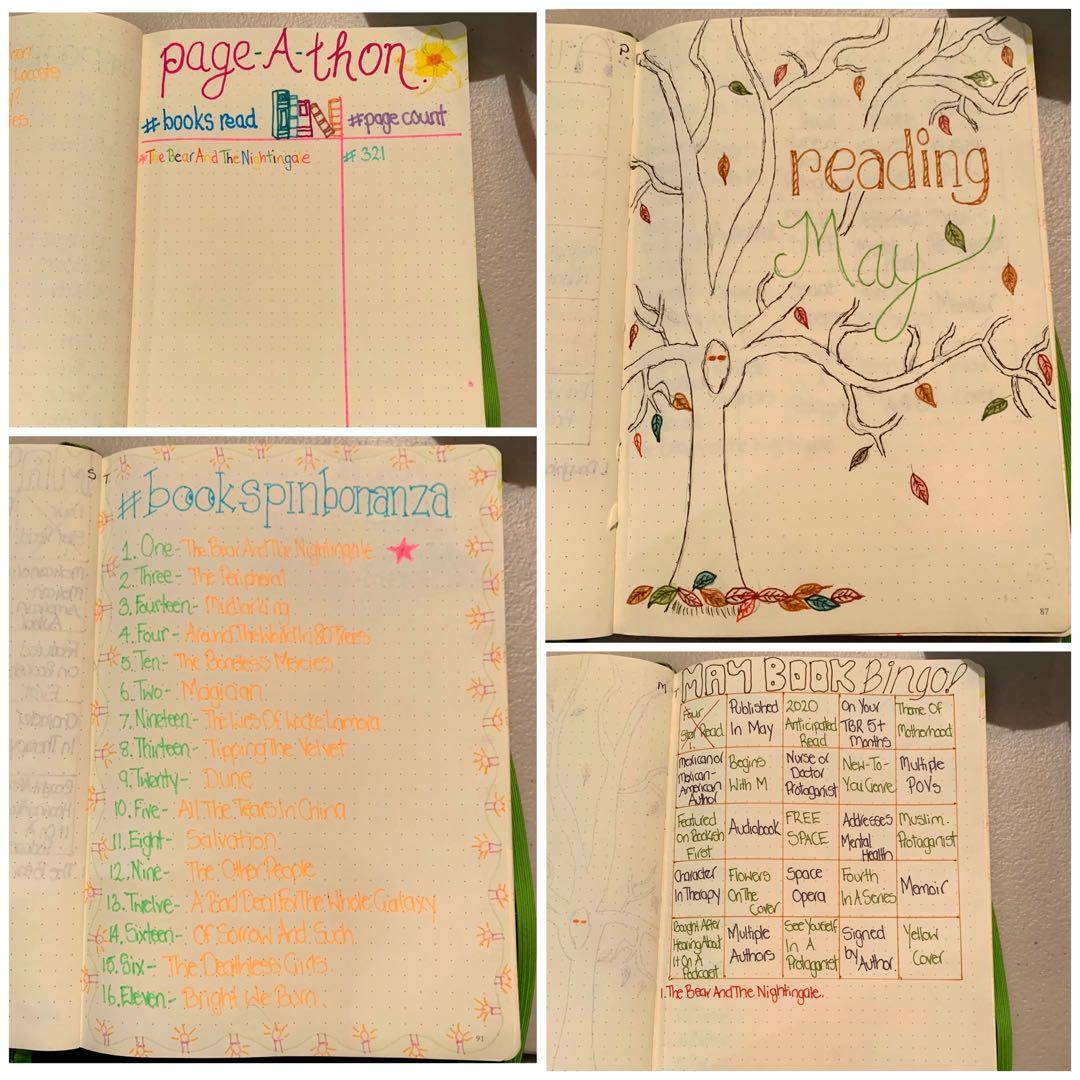 page-A-thon.
# books read
#page count
*The Bear And The Nightingale
# 321
reading
May
87
S T
#bookspinbonanza
1. One- The Bear And The Nightingale
2. Three- The Peripheral
3. Fourteen- Mudlarking
4. Four- Around The World In 80 Trees
5. Ten- The Boneless Mercies
6. Two- Magician
7. Nineteen- The Lies Of Locke Lamora
8. Thirteen- Tipping The Velvet
9. Twenty- Dune
10. Five- All The Tears In China
11. Eight- Salvation
12. Nine- The Other People
13. Twelve- A Bad Deal For The Whole Galaxy
14. Sixteen- Of Sorrow And Such
15. Six- The Deathless Girls
16. Eleven- Bright We Burn
91
M T
MAY BOOK Bingo!
Four
Star Read
1.
Published
In May
2020
Anticipated
Read
On Your
TBR 5+
Months
Theme Of
Motherhood
Mexican or
Mexican-
American
Author
Begins
With M
Nurse or
Doctor
Protaganist
New-To-
You Genre
Multiple
POVs
Featured
on Bookish
First
Audiobook
FREE
SPACE
Addresses
Mental
Health
Muslim
Protaganist
Character
In Therapy
Flowers
On The
Cover
Space
Opera
Fourth
In A Series
Memoir
Bought After
Hearing About
It On A
Podcast
Multiple
Authors
See Yourself
In A
Protaganist
Signed
by Author
Yellow
Cover
1. The Bear And The Nightingale.